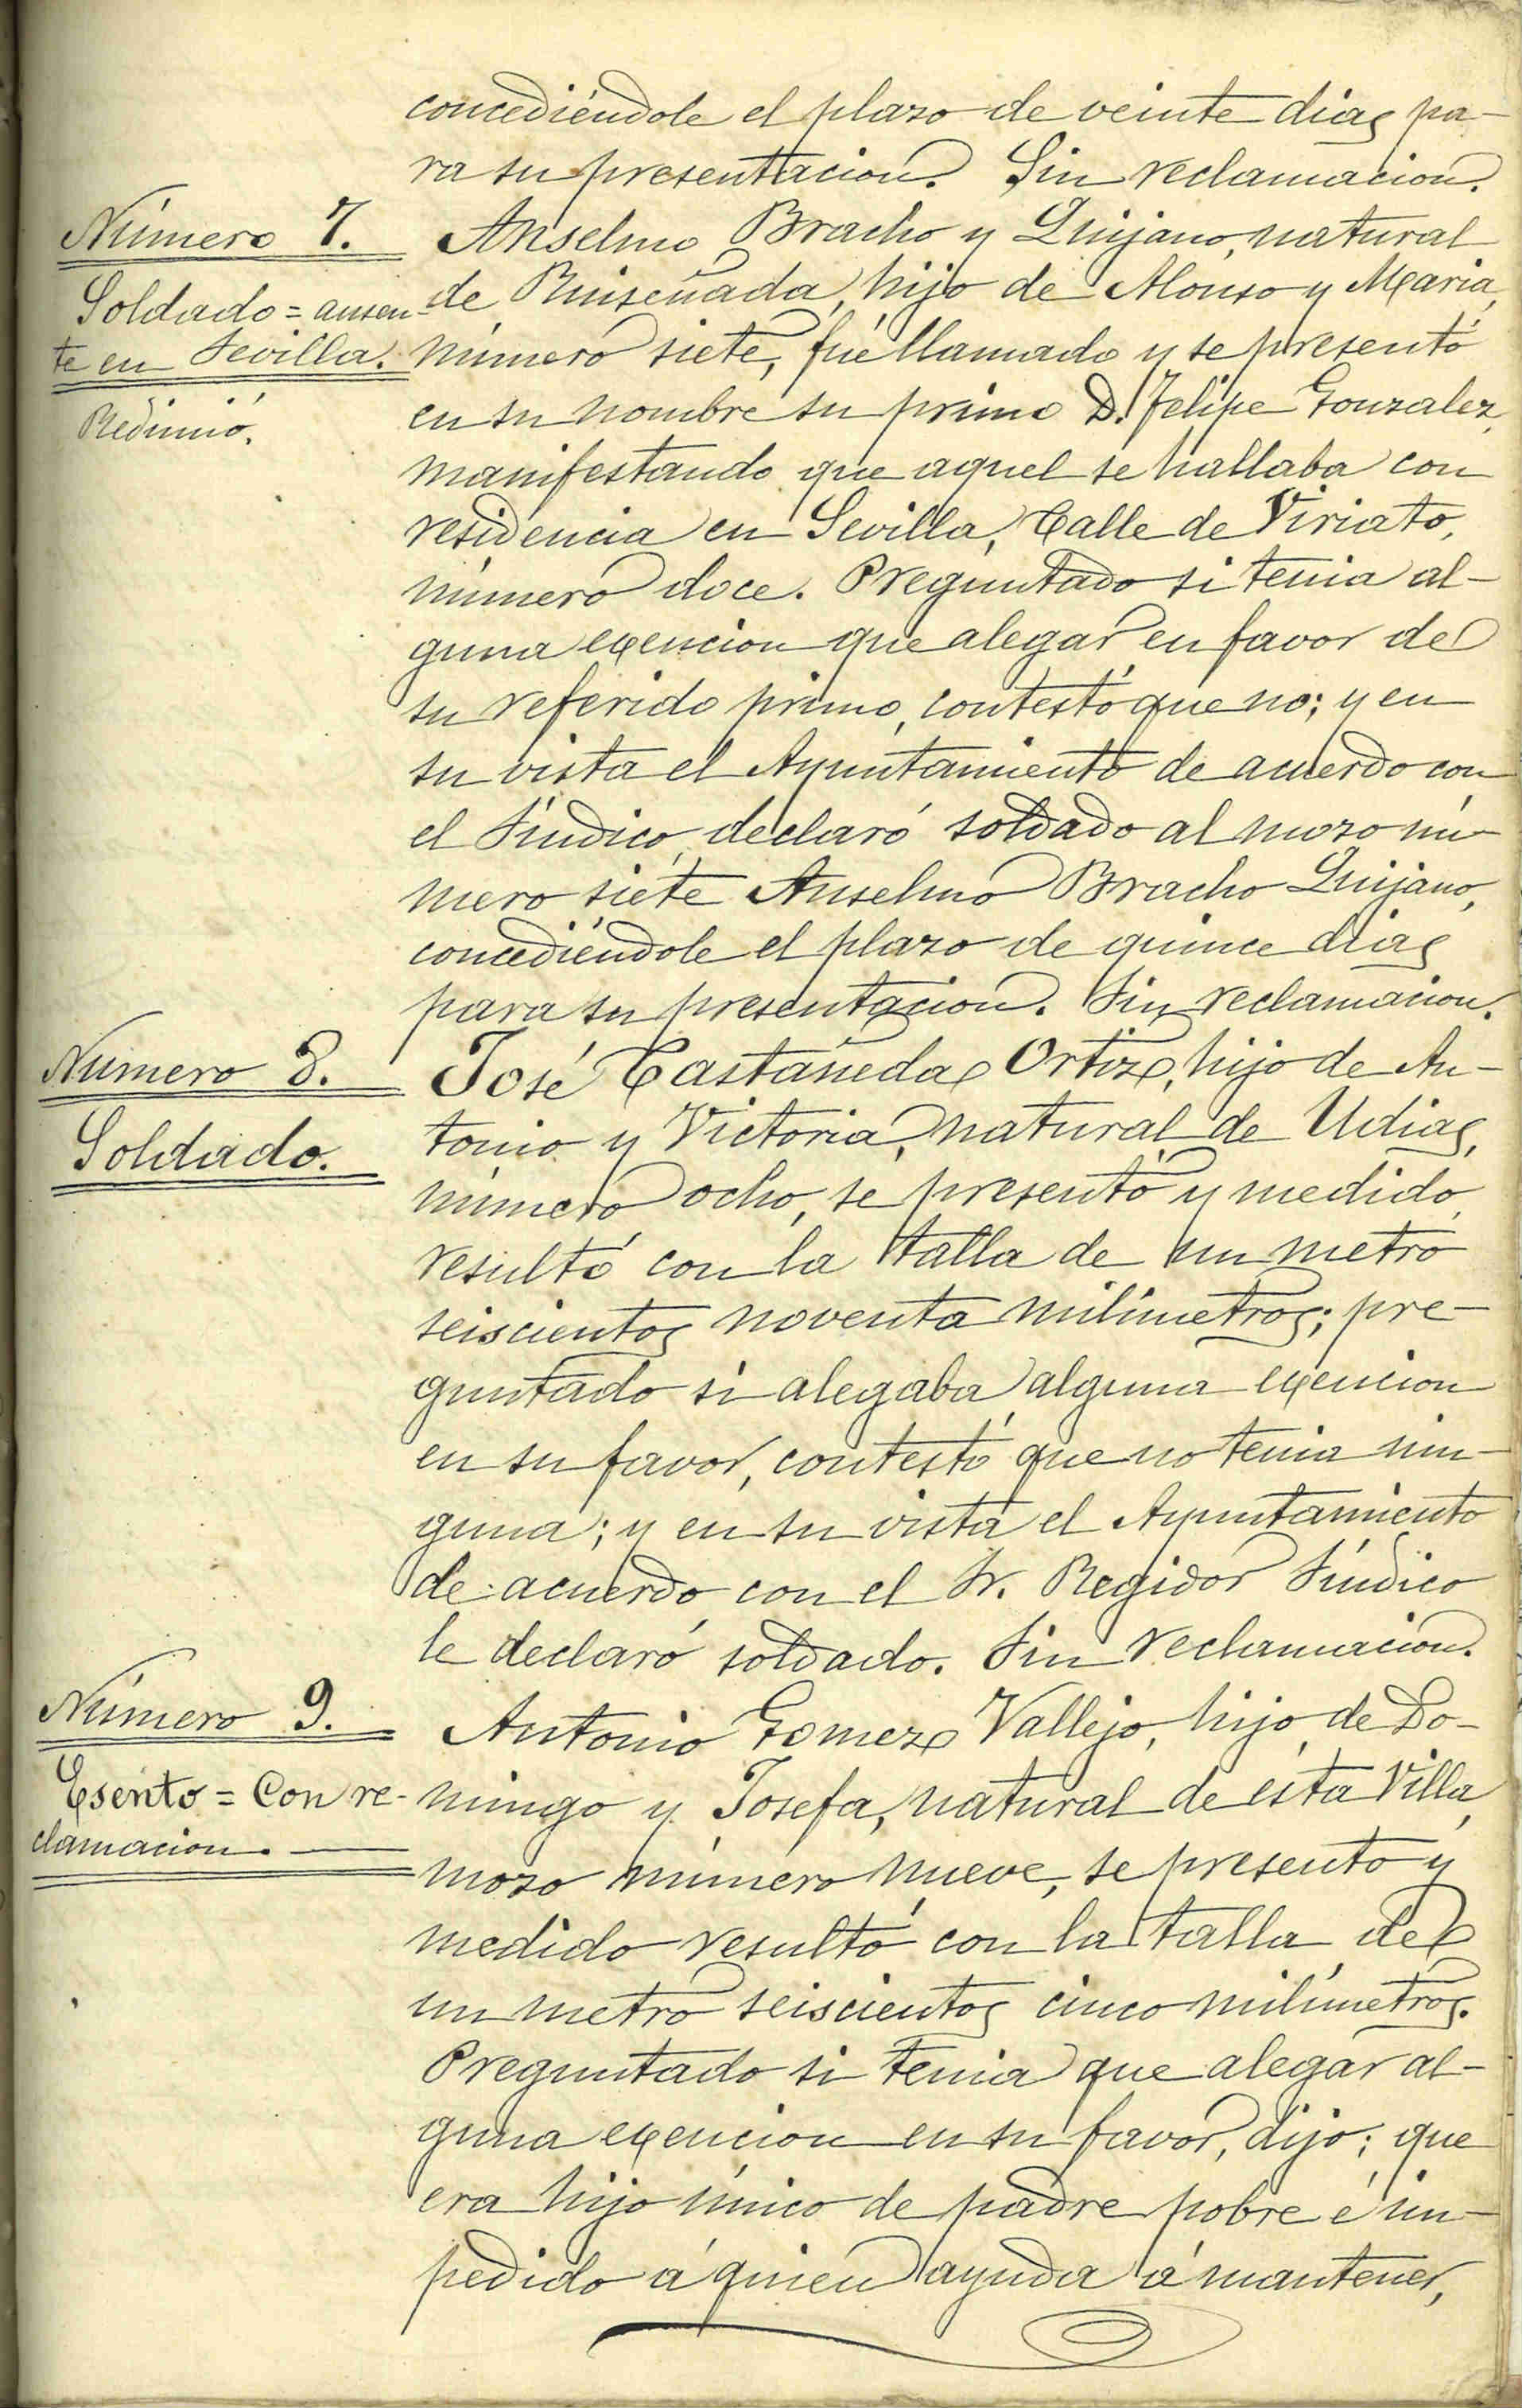 concediéndole el plazo de veinte dias pa-
ra su presentacion. Sin reclamacion.
Número 7.
Soldado = ausen-
te en Sevilla.
Redimió.
Anselmo Bracho y Quijano, natural
de Ruiseñada, hijo de Alonso y Maria,
número siete, fué llamado y se presentó
en su nombre su primo D. Felipe Gonzalez,
manifestando que aquel se hallaba con
residencia en Sevilla, Calle de Viriato,
número doce. Preguntado si tenia al-
guna exencion que alegar en favor de
su referido primo, contestó que no; y en
su vista el Ayuntamiento de acuerdo con
el Síndico declaró soldado al mozo nú-
mero siete Anselmo Bracho Quijano,
concediéndole el plazo de quince dias
para su presentacion. Sin reclamacion.
Número 8.
Soldado.
José Castañeda Ortiz, hijo de An-
tonio y Victoria, natural de Udias,
número ocho, se presentó y medido,
resultó con la talla de un metro
seiscientos noventa milímetros; pre-
guntado si alegaba alguna exencion
en su favor, contestó que no tenia nin-
guna; y en su vista el Ayuntamiento
de acuerdo con el Sr. Regidor Síndico
le declaró soldado. Sin reclamacion.
Número 9.
Esento = Con re-
clamacion.
Antonio Gomez Vallejo, hijo de Do-
mingo y Josefa, natural de esta Villa,
mozo número nueve, se presento y
medido resultó con la talla de
un metro seiscientos cinco milímetros.
Preguntado si tenia que alegar al-
guna exencion en su favor, dijo; que
era hijo único de padre pobre é im-
pedido á quien ayuda á mantener,